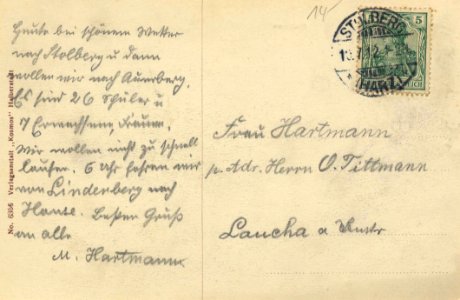 Heute bei schönem Wetter
nach Stolberg u dann
wollen wir nach Auerberg.
Es sind 26 Schüler u
7 Erwachsene, Frauen.
Wir wollen nicht zu schnell
laufen. 6 Uhr fahren wir
von Linderberg nach
Hause. Besten Gruß
an alle
M. Hartmann
No. 6356 Verlagsanstalt „Kosmos“ Halberstadt
14
STOLBERG
(HARZ)
5
Frau Hartmann
p. Adr. Herrn O. Tittmann
Laucha a Unstr